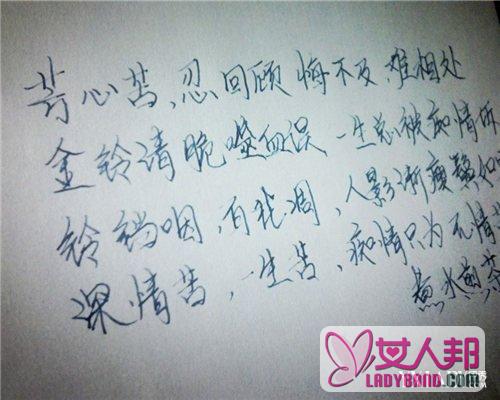 芳心苦,忍回顾 悔不及,难相处
金铃清脆噬血误 一生总被痴情诉
铃铛咽,百花凋,人影渐瘦鬓如
深情苦,一生苦,痴情只为无情
煮水煎茶
女人邦
LADYBAND.COM